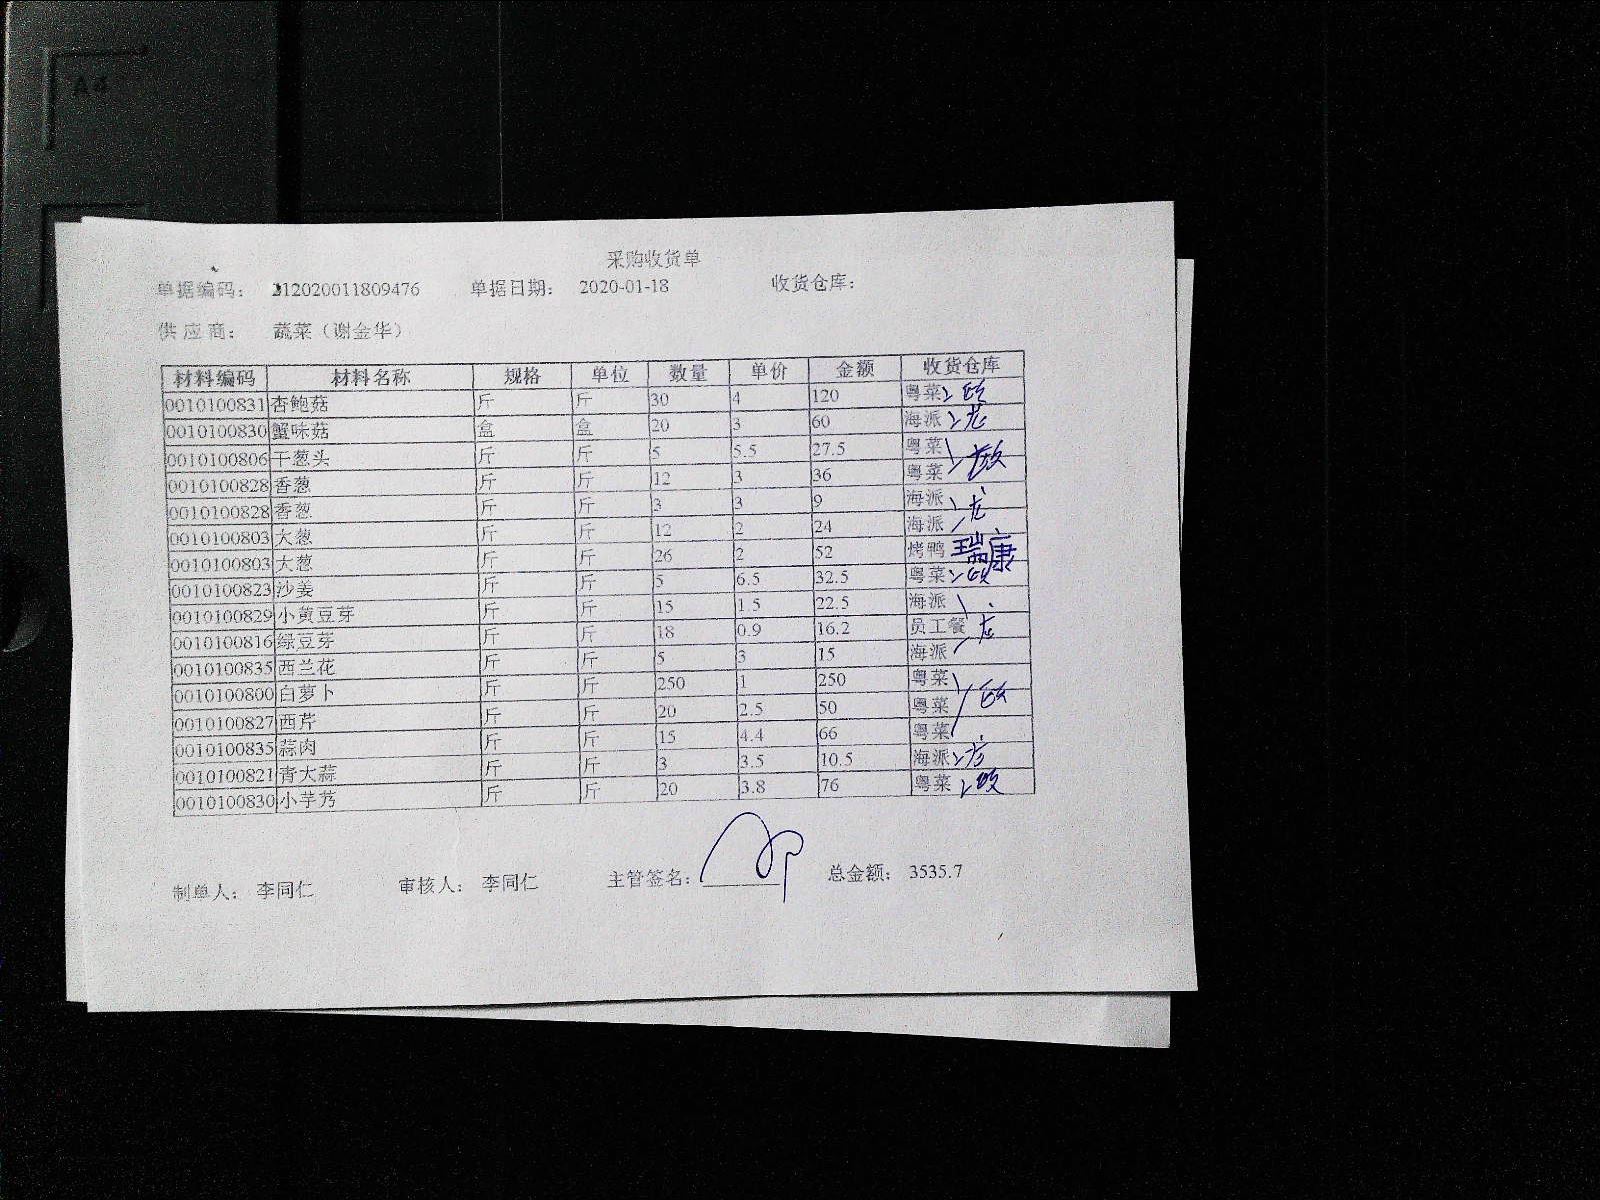 A4
采购收货单
单据编码： 212020011809476 单据日期： 2020-01-18 收货仓库：
供应商： 蔬菜（谢金华）
材料编码 材料名称 规格 单位 数量 单价 金额 收货仓库
0010100831 杏鲍菇 斤 斤 30 4 120 粤菜
0010100830 蟹味菇 盒 盒 20 3 60 海派
0010100806 干葱头 斤 斤 5 5.5 27.5 粤菜
0010100828 香葱 斤 斤 12 3 36 粤菜
0010100828 香葱 斤 斤 3 3 9 海派
0010100803 大葱 斤 斤 12 2 24 海派
0010100803 大葱 斤 斤 26 2 52 烤鸭 瑞康
0010100823 沙姜 斤 斤 5 6.5 32.5 粤菜
0010100829 小黄豆芽 斤 斤 15 1.5 22.5 海派
0010100816 绿豆芽 斤 斤 18 0.9 16.2 员工餐
0010100835 西兰花 斤 斤 5 3 15 海派
0010100800 白萝卜 斤 斤 250 1 250 粤菜
0010100827 西芹 斤 斤 20 2.5 50 粤菜
0010100835 蒜肉 斤 斤 15 4.4 66 粤菜
0010100821 青大蒜 斤 斤 3 3.5 10.5 海派
0010100830 小芋艿 斤 斤 20 3.8 76 粤菜
制单人： 李同仁 审核人： 李同仁 主管签名： 总金额： 3535.7